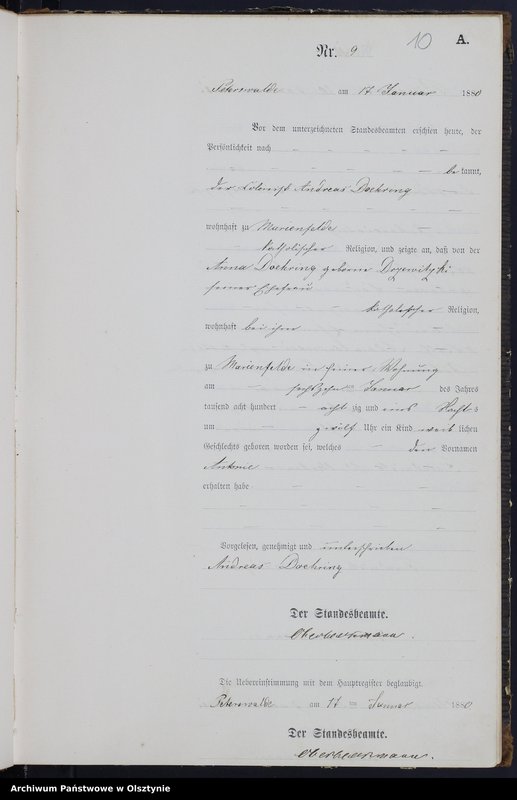 10 A.
Nr. 9
Peterswalde am 17 Januar 1880
Vor dem unterzeichneten Standesbeamten erschien heute, der
Persönlichkeit nach
be kannt,
der Andreas Doehring
wohnhaft zu Marienfelde
katholischer Religion, und zeigte an, daß von der
Anna Doehring geborne
seiner Ehefrau
katholischer Religion,
wohnhaft bei ihm
zu Marienfelde in seiner Wohnung
am sechszehn ten Januar des Jahres
tausend acht hundert acht zig und Nachts
um zwölf Uhr ein Kind weib lichen
Geschlechts geboren worden sei, welches den Vornamen
Antonie
erhalten habe
Vorgelesen, genehmigt und unterschrieben
Andreas Doehring
Der Standesbeamte.
Die Uebereinstimmung mit dem Hauptregister beglaubigt
Peterswalde am 17 ten Januar 1880
Der Standesbeamte.
Archiwum Państwowe w Olsztynie